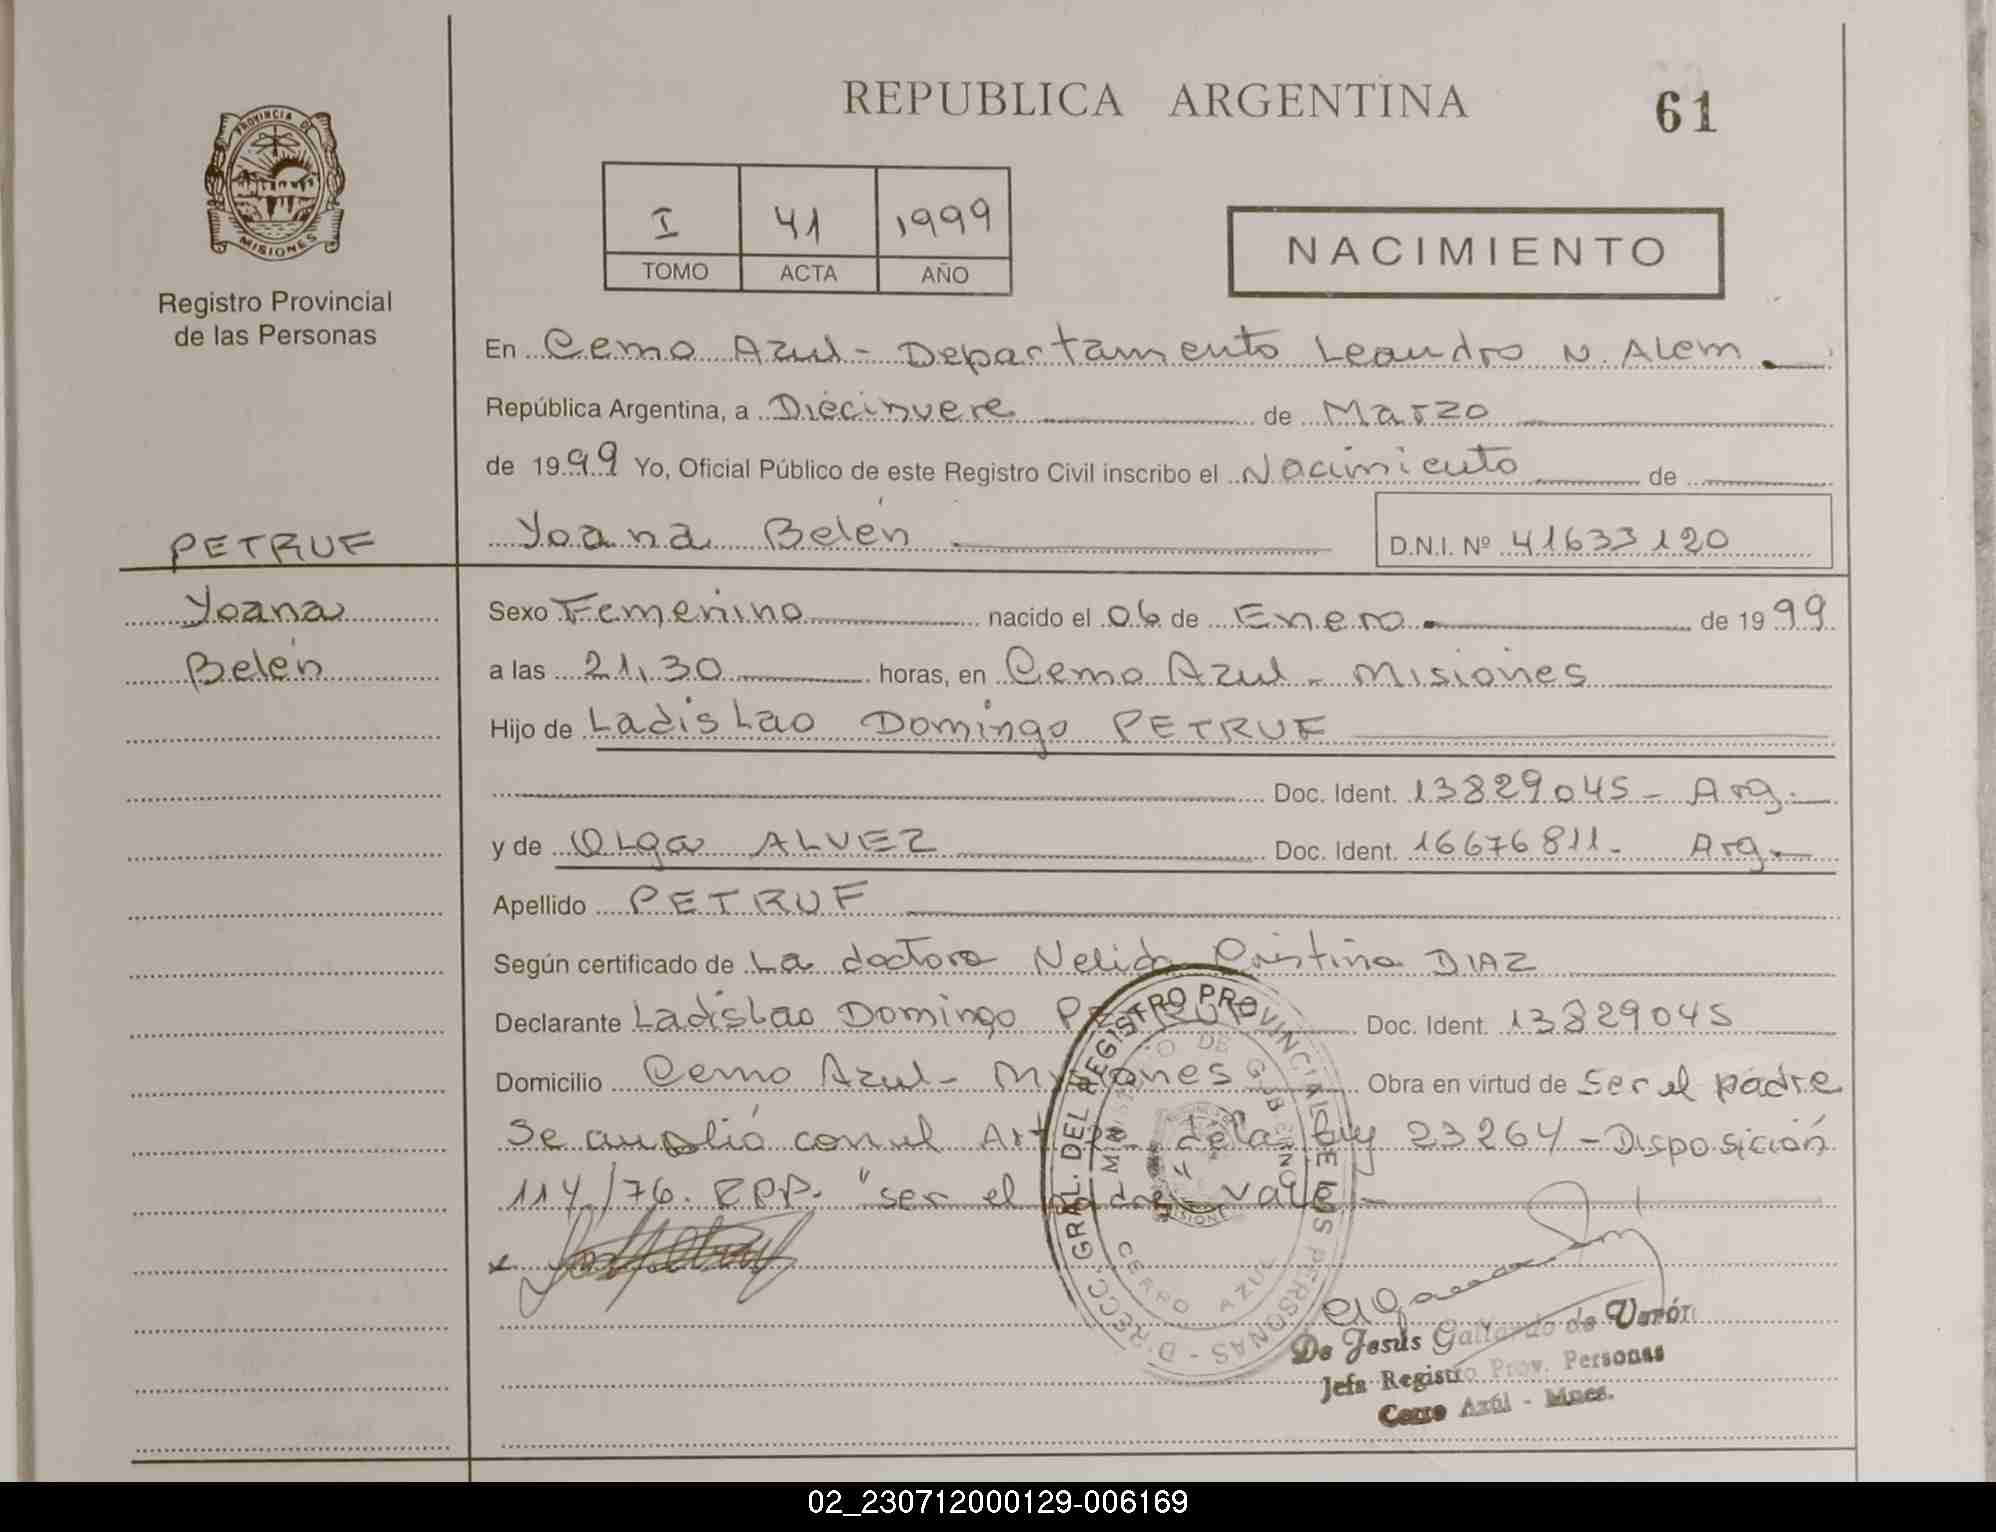 REPUBLICA ARGENTINA
61
PROVINCIA DE
MISIONES
Registro Provincial
de las Personas
I 41 1999
TOMO ACTA AÑO
NACIMIENTO
En Cerro Azul - Departamento Leandro N. Alem.
República Argentina, a Diecinueve de Marzo
de 1999 Yo, Oficial Público de este Registro Civil inscribo el Nacimiento de
PETRUF
Yoana Belén
D.N.I. Nº 41633120
Yoana
Belén
Sexo Femenino nacido el 06 de Enero. de 1999
a las 21,30 horas, en Cerro Azul - Misiones
Hijo de Ladislao Domingo PETRUF
Doc. Ident. 13829045 - Arg.
y de Olga ALVEZ Doc. Ident. 16676811 - Arg.
Apellido PETRUF
Según certificado de La doctora Nelida Cristina DIAZ
Declarante Ladislao Domingo PETRUF Doc. Ident. 13829045
Domicilio Cerro Azul - Misiones Obra en virtud de Ser el padre
Se cumplió con el Art de la ley 23264 - Disposición
114/76. RPP. "ser el padre" vale
DIRECC. GRAL. DEL REGISTRO PROVINCIAL DE LAS PERSONAS -
MINISTERIO DE GOBIERNO
MISIONES
CERRO AZUL
De Jesús Gallardo de Varón
Jefa Registro Prov. Personas
Cerro Azúl - Mnes.
02_230712000129-006169